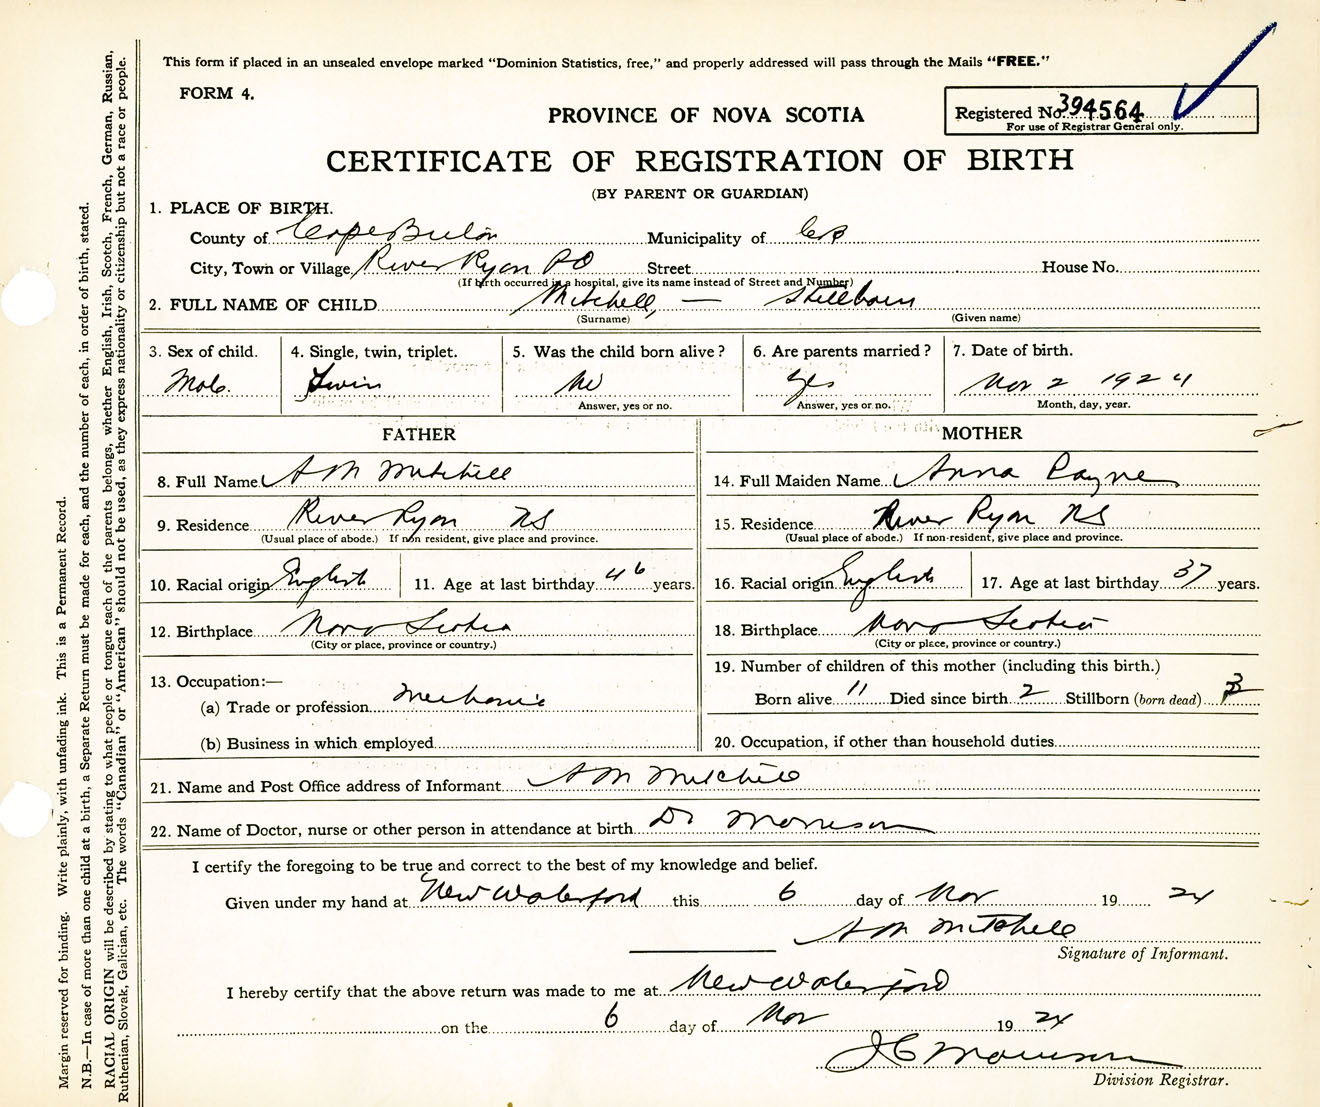 This form if placed in an unsealed envelope marked "Dominion Statistics, free," and properly addressed will pass through the Mails "FREE."
FORM 4.
PROVINCE OF NOVA SCOTIA
Registered No. 394564
For use of Registrar General only.
CERTIFICATE OF REGISTRATION OF BIRTH
(BY PARENT OR GUARDIAN)
1. PLACE OF BIRTH.
County of Cape Breton Municipality of CB
City, Town or Village River Ryan PO Street House No.
(If birth occurred in a hospital, give its name instead of Street and Number)
2. FULL NAME OF CHILD Mitchell, — Stillborn
(Surname) (Given name)
3. Sex of child. 4. Single, twin, triplet. 5. Was the child born alive? 6. Are parents married? 7. Date of birth.
Male. Twin No Yes Nov 2 1924
Answer, yes or no. Answer, yes or no. Month, day, year.
FATHER MOTHER
8. Full Name A M Mitchell 14. Full Maiden Name Anna Payne
9. Residence River Ryan NS 15. Residence River Ryan NS
(Usual place of abode.) If non resident, give place and province. (Usual place of abode.) If non-resident, give place and province.
10. Racial origin English 11. Age at last birthday 46 years. 16. Racial origin English 17. Age at last birthday 37 years.
12. Birthplace Nova Scotia 18. Birthplace Nova Scotia
(City or place, province or country.) (City or place, province or country.)
13. Occupation:— 19. Number of children of this mother (including this birth.)
(a) Trade or profession Mechanic Born alive 11 Died since birth 2 Stillborn (born dead)
(b) Business in which employed 20. Occupation, if other than household duties
21. Name and Post Office address of Informant A M Mitchell
22. Name of Doctor, nurse or other person in attendance at birth Dr Morrison
I certify the foregoing to be true and correct to the best of my knowledge and belief.
Given under my hand at New Waterford this 6 day of Nov 19 24
A M Mitchell
Signature of Informant.
I hereby certify that the above return was made to me at New Waterford
on the 6 day of Nov 19 24
J C Morrison
Division Registrar.
Margin reserved for binding. Write plainly, with unfading ink. This is a Permanent Record.
N.B.—In case of more than one child at a birth, a Separate Return must be made for each, and the number of each, in order of birth, stated.
RACIAL ORIGIN will be described by stating to what people or tongue each of the parents belongs, whether English, Irish, Scotch, French, German, Russian,
Ruthenian, Slovak, Galician, etc. The words "Canadian" or "American" should not be used, as they express nationality or citizenship but not a race or people.